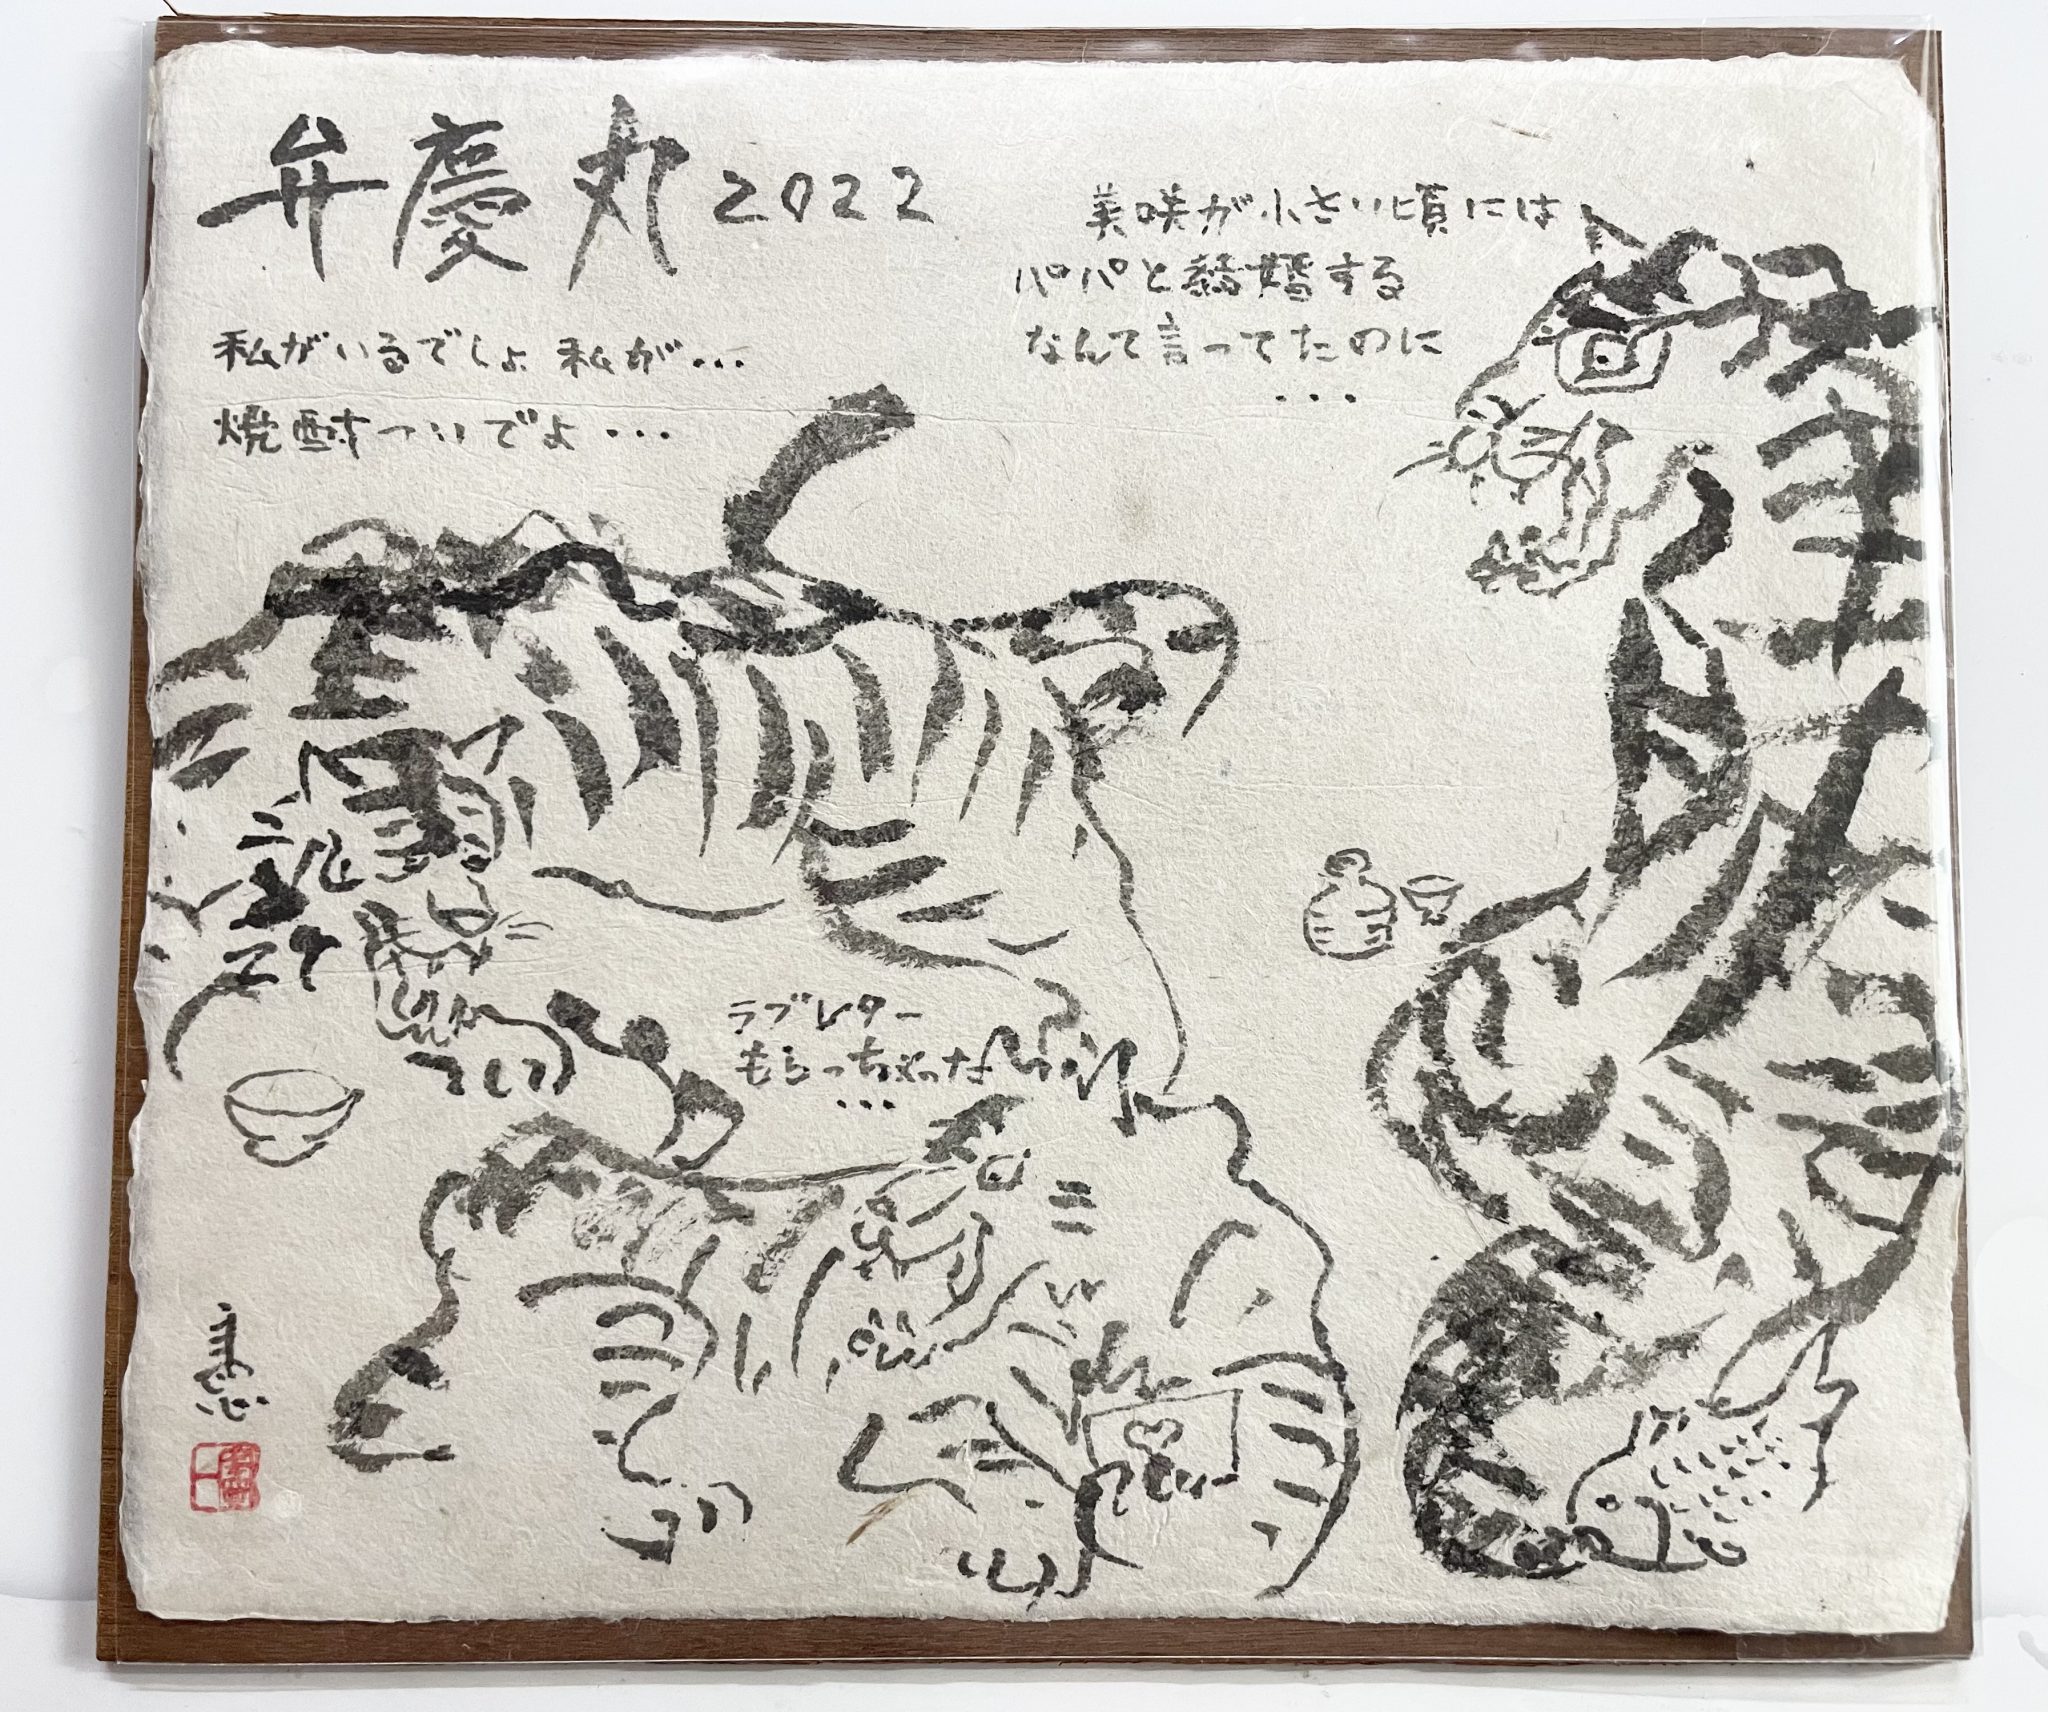 弁慶丸2022
私がいるでしょ 私が...
焼酎ついでよ...
美咲が小さい頃には
パパと結婚する
なんて言ってたのに
...
ラブレター
もらっちゃったな
...